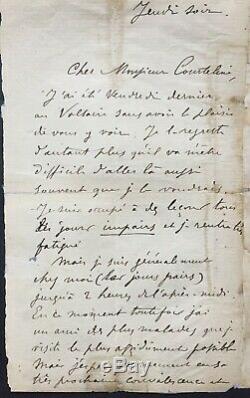 Jeudi soir
Cher Monsieur Courteline,
J'ai été Vendredi dernier
au Voltaire sans avoir le plaisir
de vous y voir. Je le regrette
d'autant plus qu'il va m'être
difficile d'aller là aussi
souvent que je le voudrais.
Je suis occupé à des leçons tous
les jours impairs et je rentre
fatigué
Mais je suis généralement
chez moi (les jours pairs)
jusqu'à 2 heures de l'après-midi
En ce moment toutefois j'ai
un ami des plus malades que je
visite le plus assidûment possible
Mais j'espère
très prochaine convalescence et
bay